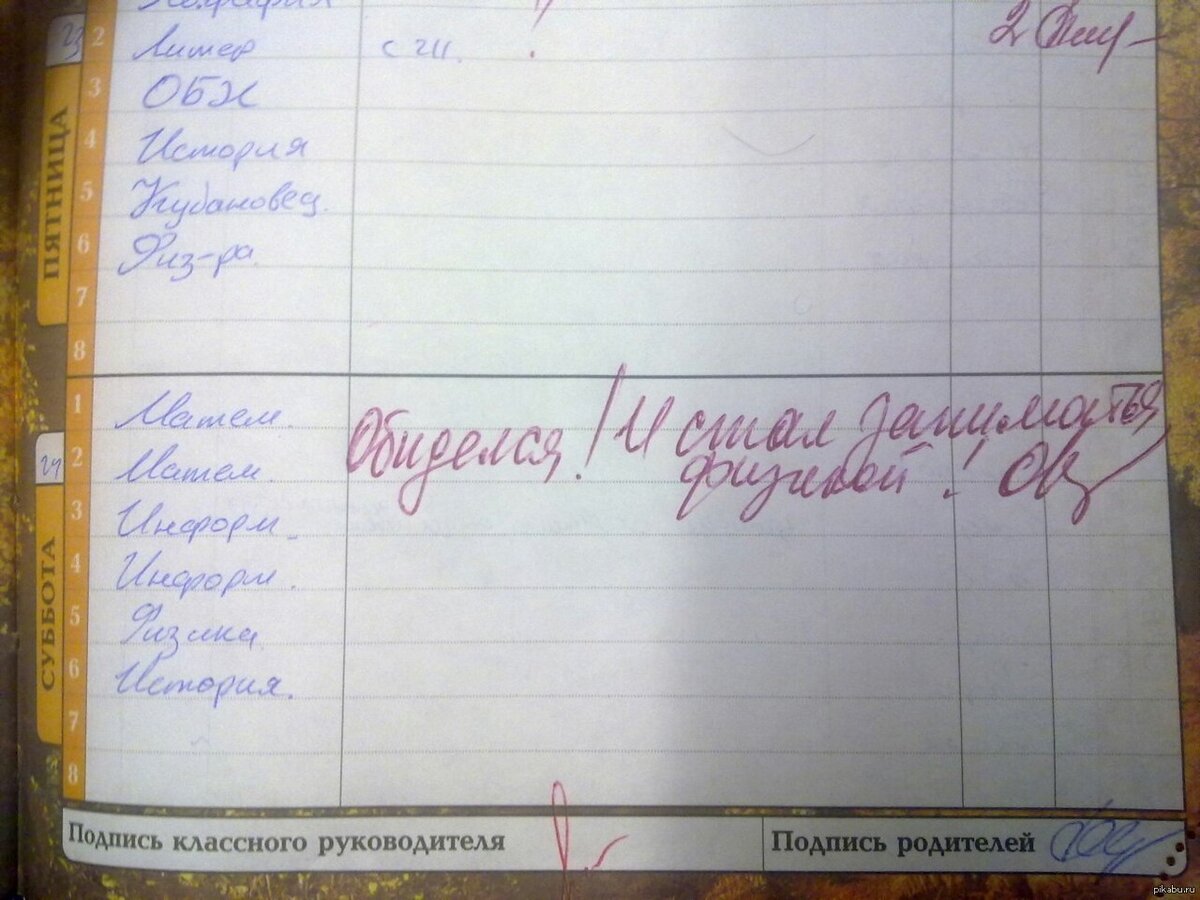 23
ПЯТНИЦА
2 Литер с 211. 2
3 ОБЖ
4 История
5 Кубановед.
6 Физ-ра
7
8
24
СУББОТА
1 Матем.
2 Матем.
Обиделся! И стал заниматься
физикой!
3 Информ
4 Информ.
5 Физика
6 История.
7
8
Подпись классного руководителя
Подпись родителей
pikabu.ru